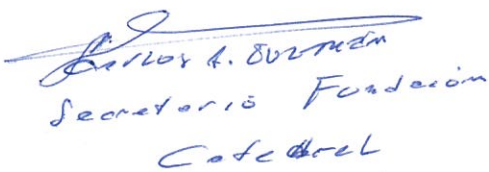 Carlos A. Guzmán
Secretario Fundación
Catedral